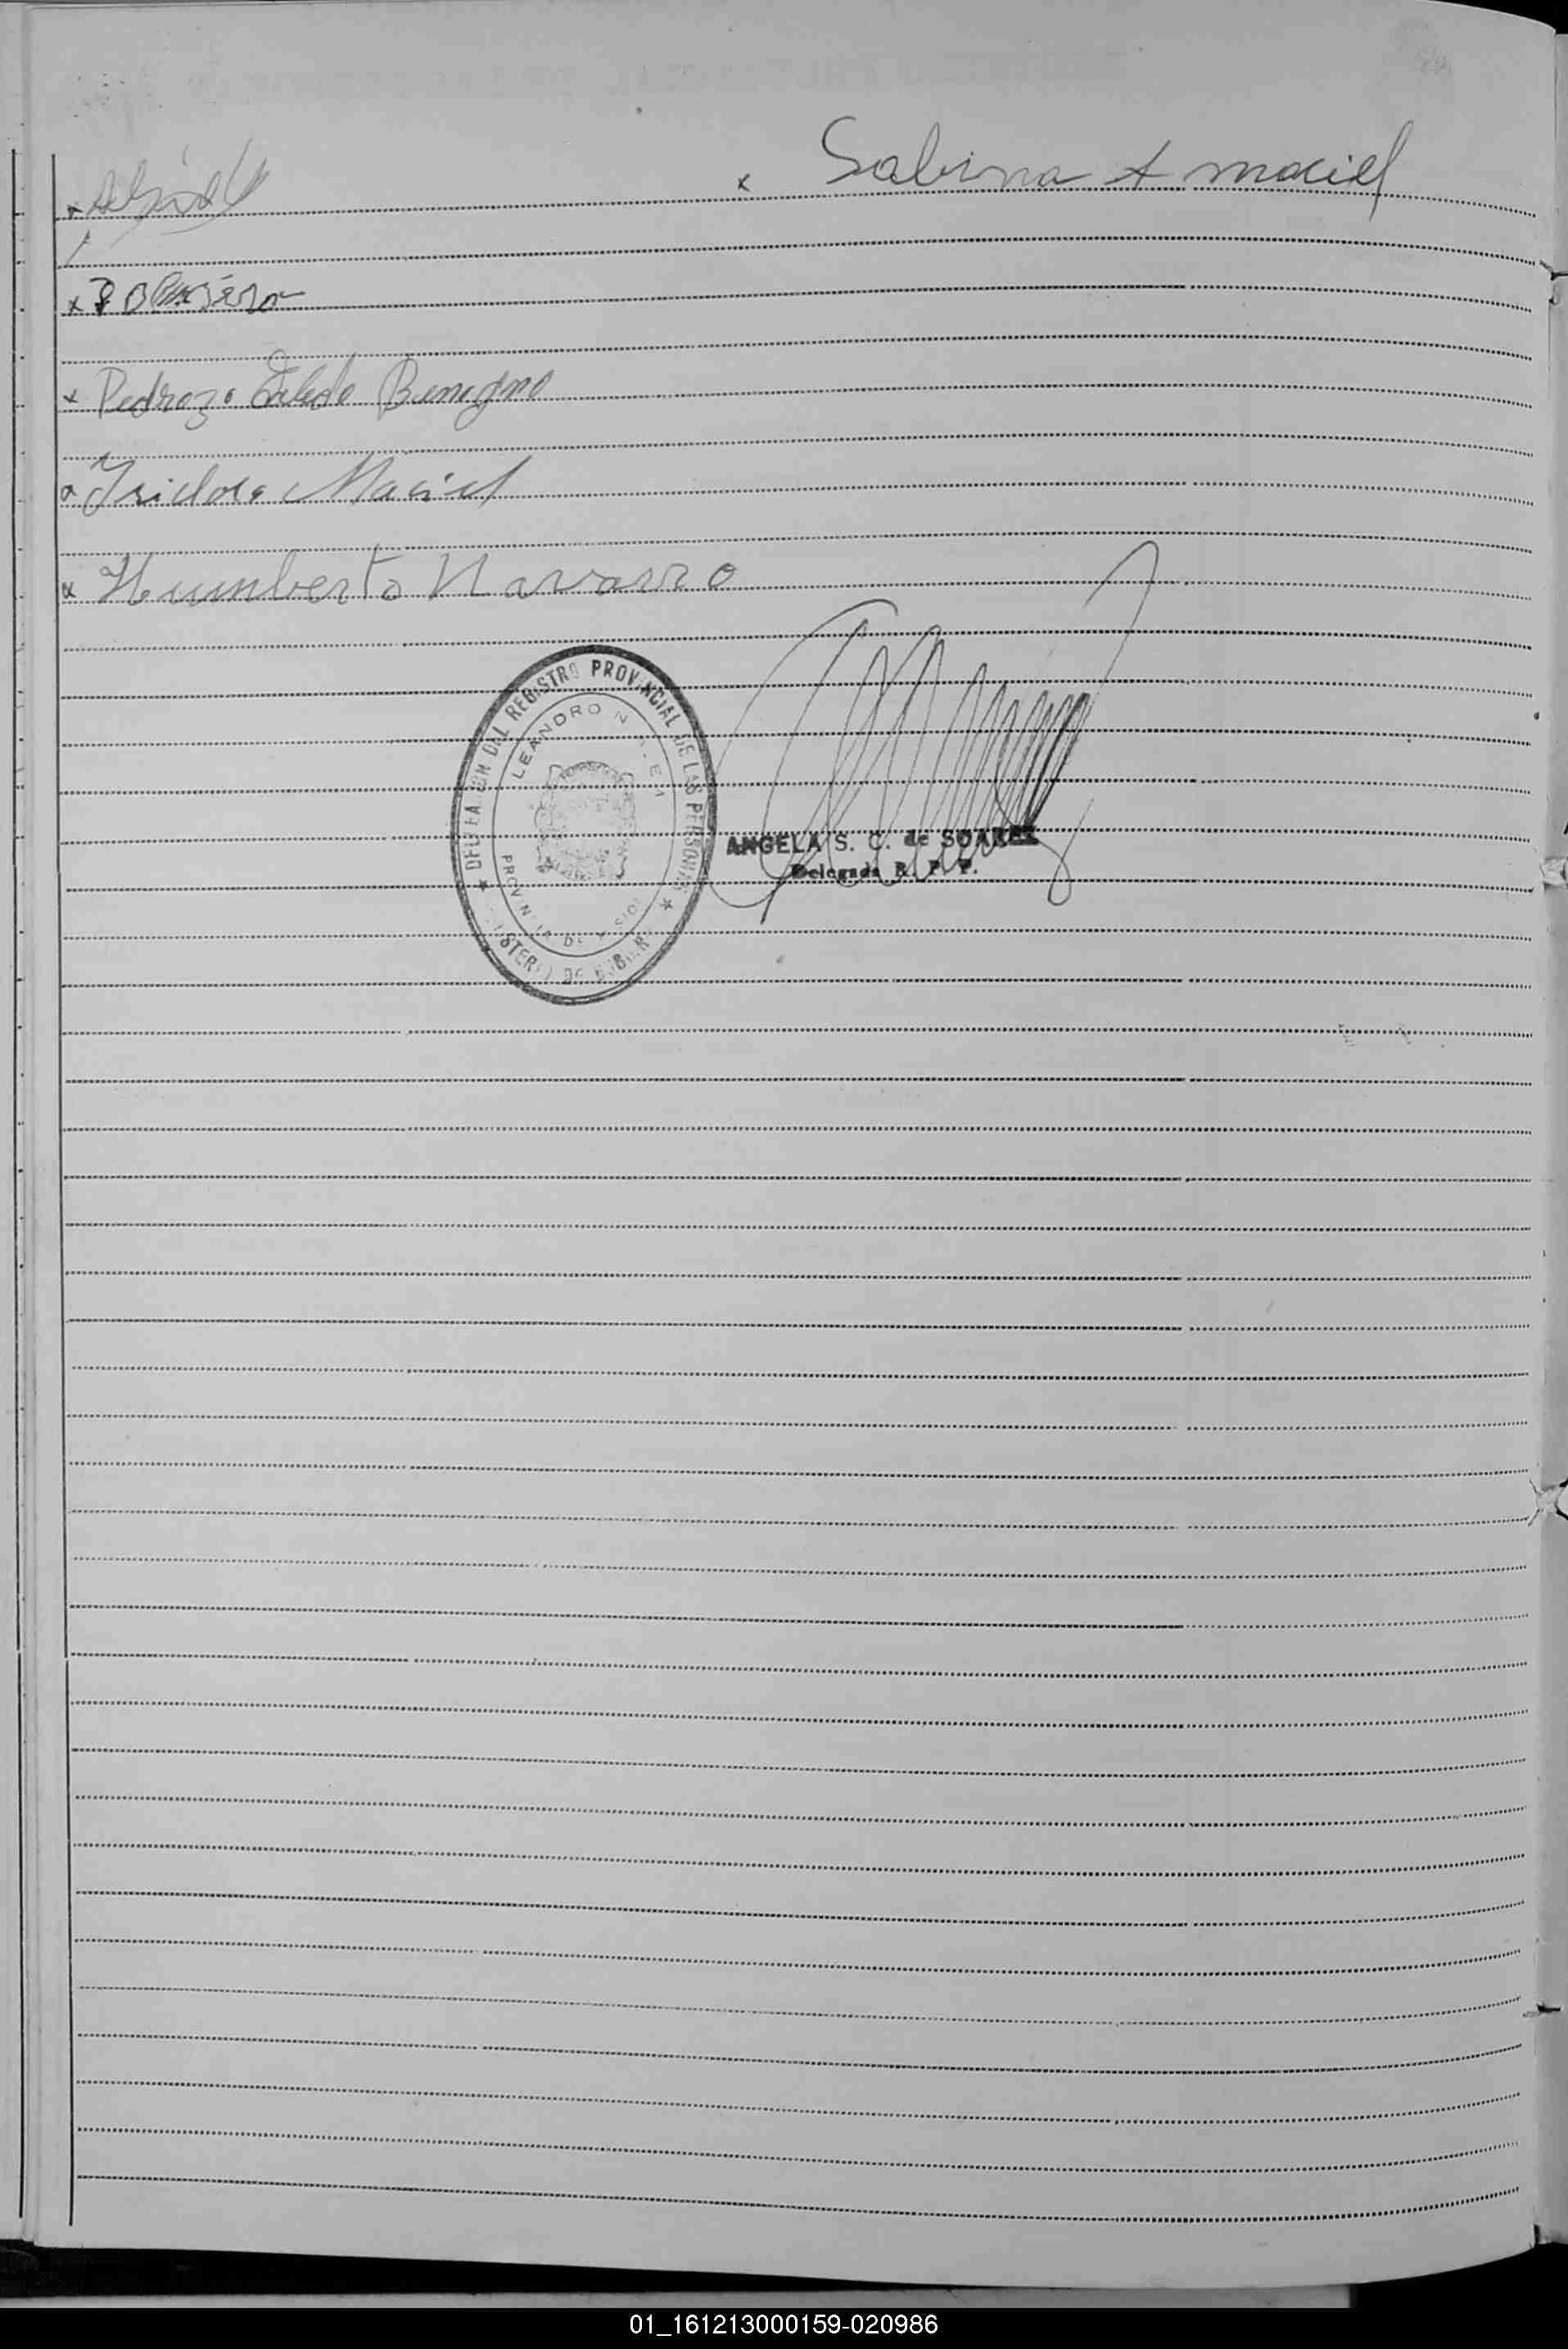 x Sabina A maciel
x
x Pedrozo Toledo Benigno
x Isidoro Maciel
x Humberto Navarro
DELEGACION DEL REGISTRO PROVINCIAL DE LAS PERSONAS
LEANDRO N. ALEM
PROVINCIA DE MISIONES
MINISTERIO DE GOBIERNO
ANGELA S. C. de SOAREZ
Delegada R. P. P.
01_161213000159-020986